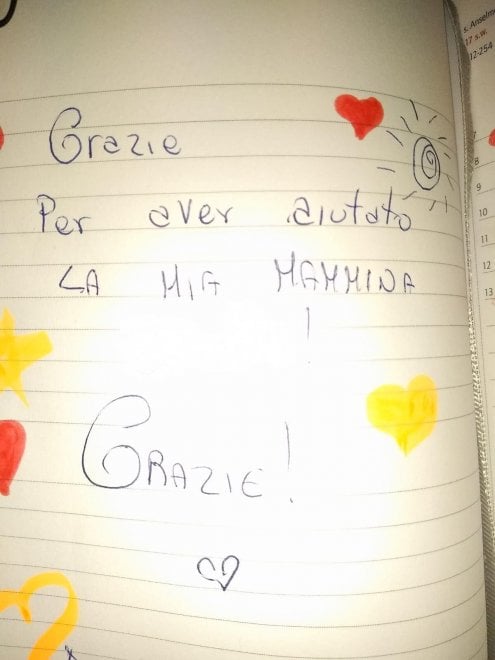 Grazie
Per aver aiutato
LA MIA MAMMINA
!
GRAZIE!
s. Anselmo
17 s.w.
12-254
7
8
9
10
11
12
13